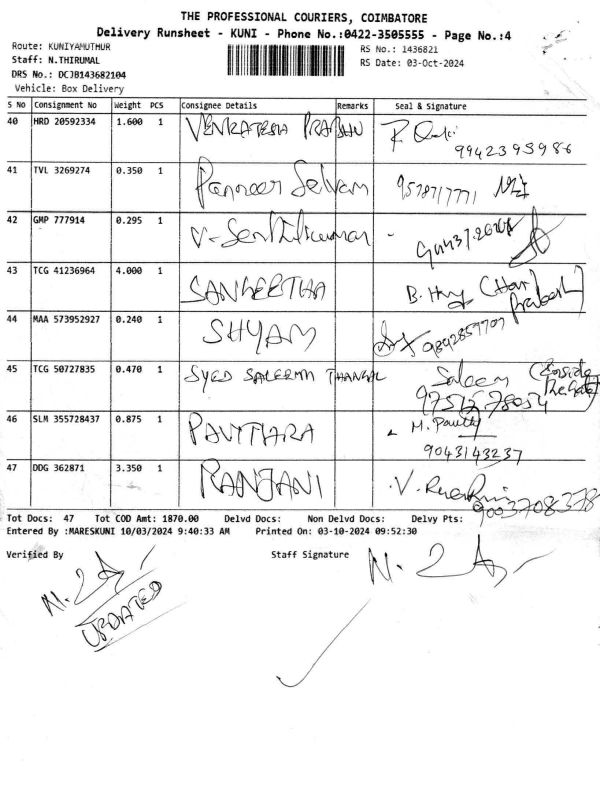 THE PROFESSIONAL COURIERS, COIMBATORE
Delivery Runsheet - KUNI - Phone No.:0422-3505555 - Page No.:4
Route: KUNIYAMUTHUR RS No.: 1436821
Staff: N.THIRUMAL RS Date: 03-Oct-2024
DRS No.: DCJB143682104
Vehicle: Box Delivery
S No Consignment No Weight PCS Consignee Details Remarks Seal & Signature
40 HRD 20592334 1.600 1 VENKATESH PRABHU
9942395986
41 TVL 3269274 0.350 1 Panneer Selvam 9578717771
42 GMP 777914 0.295 1 V-Senthilkumar -
43 TCG 41236964 4.000 1 SANGEETHA B. (Hari
Prakash)
44 MAA 573952927 0.240 1 SHYAM 9842857707
45 TCG 50727835 0.470 1 SYED SALEEMA THANGAL Saleem (Inside
46 SLM 355728437 0.875 1 PAVITHRA M. Pavith
9043143237
47 DDG 362871 3.350 1 RANJANI V.
9003708378
Tot Docs: 47 Tot COD Amt: 1870.00 Delvd Docs: Non Delvd Docs: Delvy Pts:
Entered By :MARESKUNI 10/03/2024 9:40:33 AM Printed On: 03-10-2024 09:52:30
Verified By Staff Signature
UPDATED